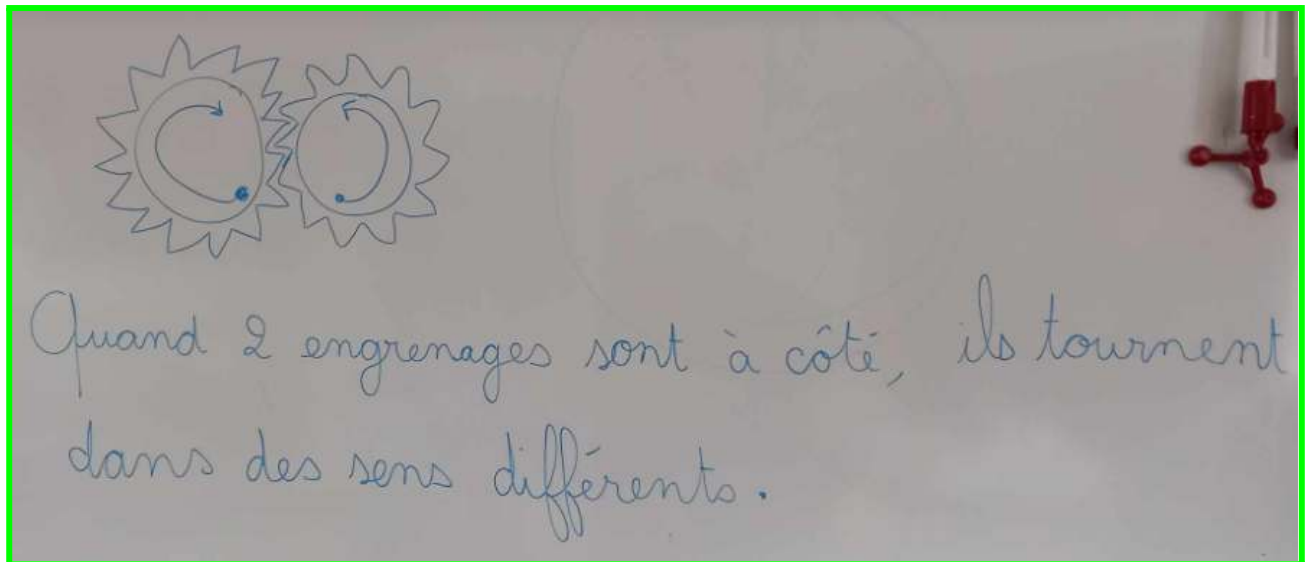 Quand 2 engrenages sont à côté, ils tournent
dans des sens différents.